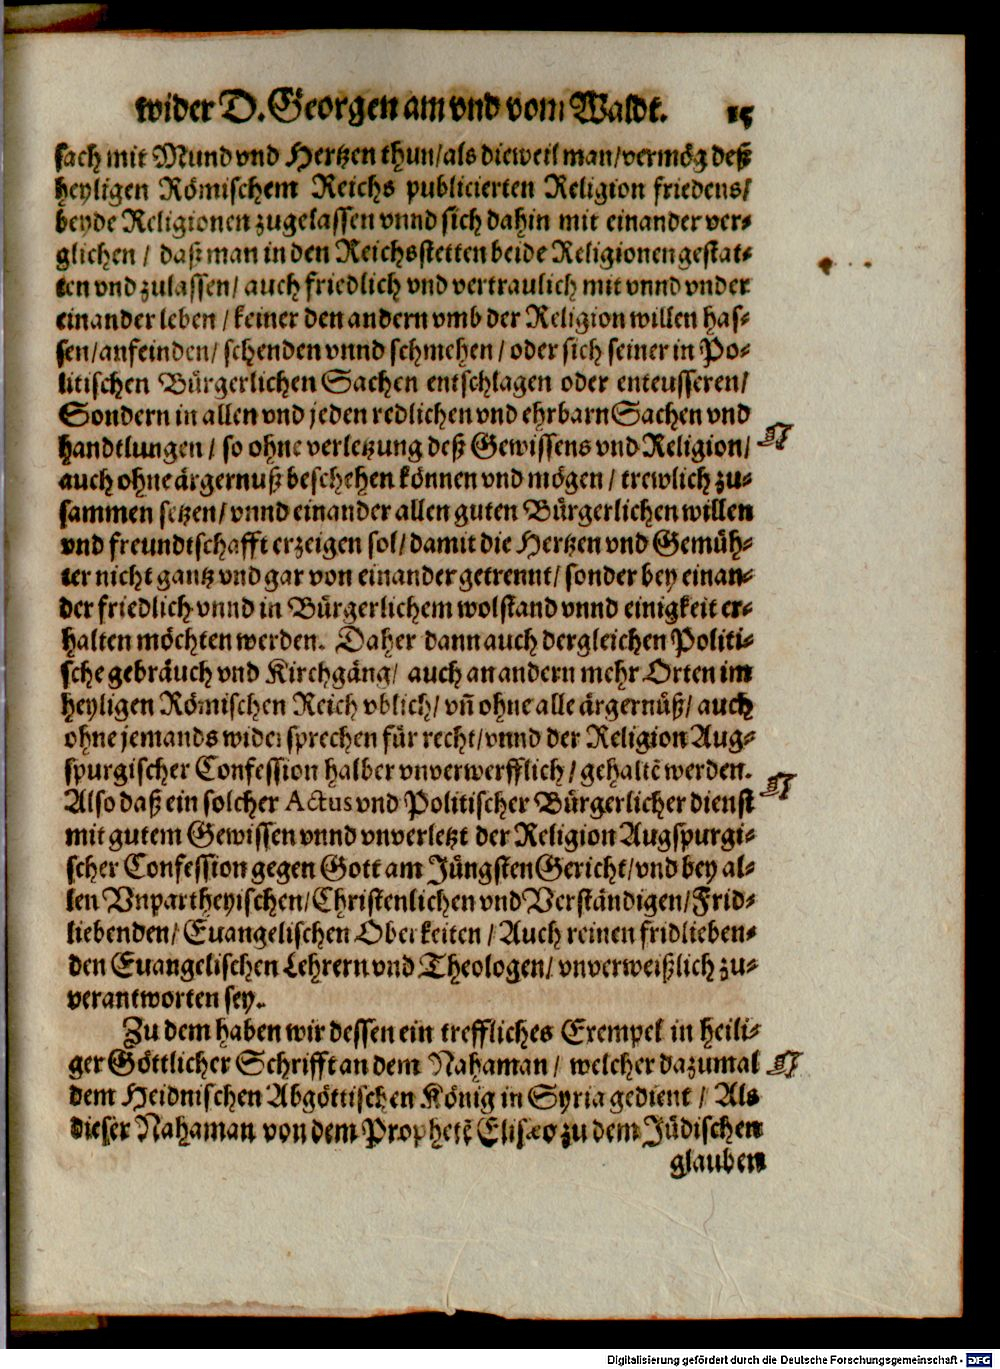 wider D. Georgen am vnd vom Waldt. 15
sach mit Mund vnd Hertzen thun/ als dieweil man/ vermög deß
heyligen Römischem Reichs publicierten Religion friedens/
beyde Religionen zugelassen vnnd sich dahin mit einander ver⸗
glichen / daß man in den Reichsstetten beide Religionen gestat⸗
ten vnd zulassen/ auch friedlich vnd vertraulich mit vnnd vnder
einander leben / keiner den andern vmb der Religion willen has⸗
sen/ anfeinden/ schenden vnnd schmehen / oder sich seiner in Po⸗
litischen Bürgerlichen Sachen entschlagen oder enteusseren/
Sondern in allen vnd jeden redlichen vnd ehrbarn Sachen vnd
handtlungen / so ohne verletzung deß Gewissens vnd Religion/
auch ohne ärgernuß beschehen können vnd mögen / trewlich zu⸗
sammen setzen/ vnnd einander allen guten Bürgerlichen willen
vnd freundtschafft erzeigen sol/ damit die Hertzen vnd Gemüh⸗
ter nicht gantz vnd gar von einander getrennt/ sonder bey einan⸗
der friedlich vnnd in Bürgerlichem wolstand vnnd einigkeit er⸗
halten möchten werden. Daher dann auch dergleichen Politi⸗
sche gebräuch vnd Kirchgäng/ auch an andern mehr Orten im
heyligen Römischen Reich vblich/ vñ ohne alle ärgernüß/ auch
ohne jemands widersprechen für recht/ vnnd der Religion Aug⸗
spurgischer Confession halber vnverwerfflich / gehaltē werden.
Also daß ein solcher Actus vnd Politischer Bürgerlicher dienst
mit gutem Gewissen vnnd vnverletzt der Religion Augspurgi⸗
scher Confession gegen Gott am Jüngsten Gericht/ vnd bey al⸗
len Vnpartheyischen/ Christenlichen vnd Verständigen/ Frid⸗
liebenden/ Euangelischen Oberkeiten / Auch reinen fridlieben⸗
den Euangelischen Lehrern vnd Theologen/ vnverweißlich zu⸗
verantworten sey.
Zu dem haben wir dessen ein treffliches Exempel in heili⸗
ger Göttlicher Schrifft an dem Nahaman / welcher dazumal
dem Heidnischen Abgöttischen König in Syria gedient / Als
dieser Nahaman von dem Prophetē Elisæo zu dem Jüdischen
glauben
Digitalisierung gefördert durch die Deutsche Forschungsgemeinschaft - DFG